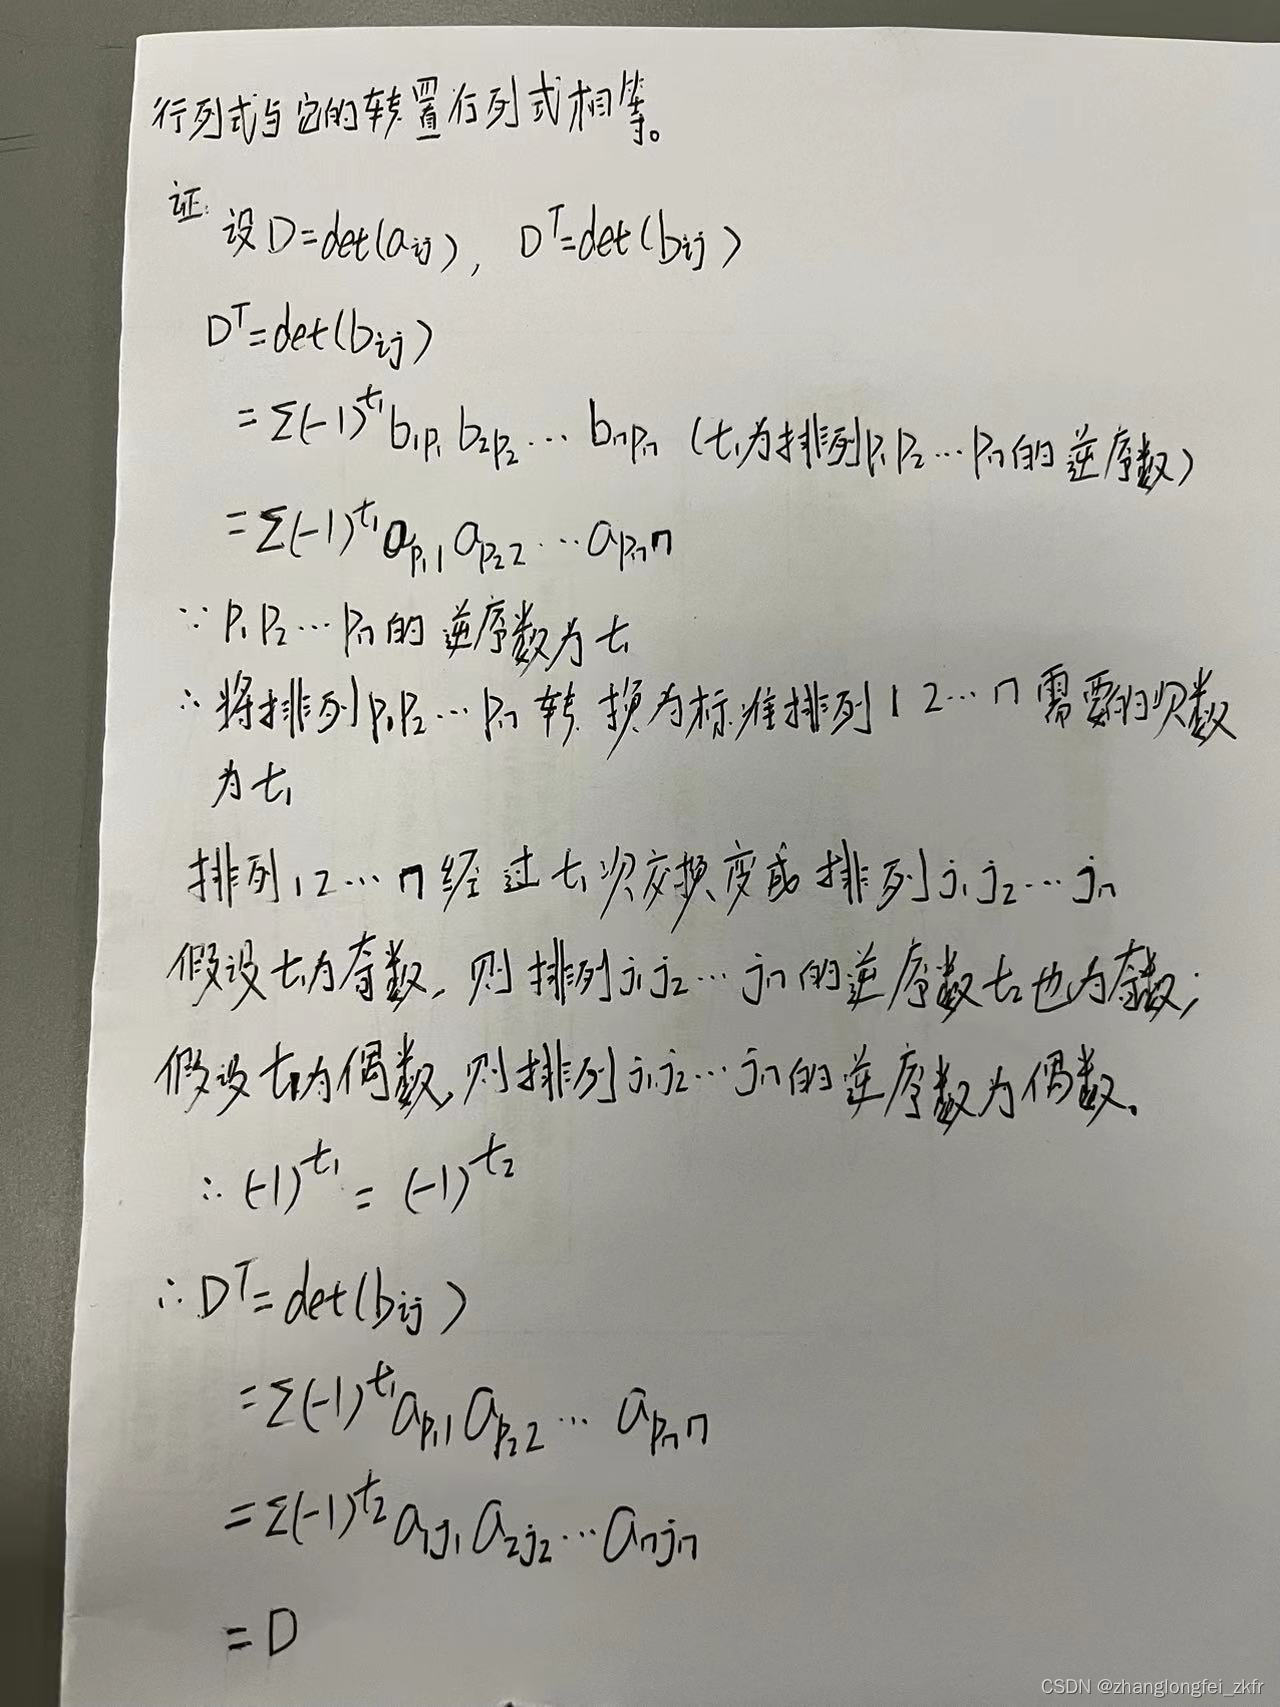 行列式与它的转置行列式相等。
证:
设D=det(aij), Dᵀ=det(bij)
Dᵀ=det(bij)
=Σ(-1)^t₁ b₁p₁ b₂p₂ … bnpn (t₁为排列p₁p₂…pn的逆序数)
=Σ(-1)^t₁ ap₁1 ap₂2 … apnn
∵ p₁p₂…pn的逆序数为t₁
∴ 将排列p₁p₂…pn转换为标准排列12…n需要的次数
为t₁
排列12…n经过t₁次交换变成排列j₁j₂…jn
假设t₁为奇数,则排列j₁j₂…jn的逆序数t₂也为奇数;
假设t₁为偶数,则排列j₁j₂…jn的逆序数为偶数.
∴ (-1)^t₁ = (-1)^t₂
∴ Dᵀ=det(bij)
=Σ(-1)^t₁ ap₁1 ap₂2 … apnn
=Σ(-1)^t₂ a₁j₁ a₂j₂ … anjn
=D
CSDN @zhanglongfei_zkfr